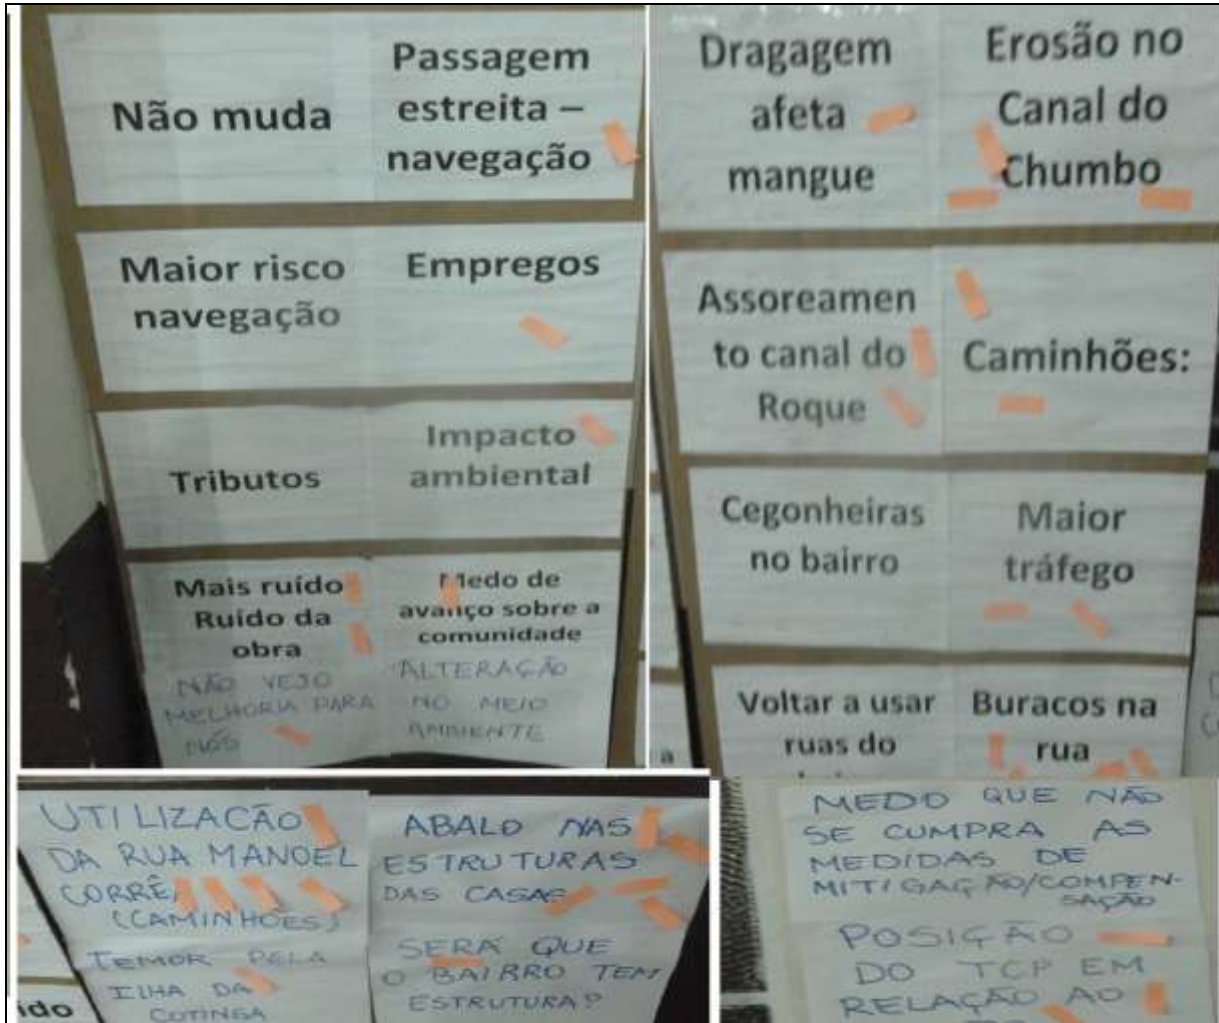 Não muda
Passagem
estreita –
navegação
Maior risco
navegação
Empregos
Tributos
Impacto
ambiental
Mais ruído
Ruído da
obra
NÃO VEJO
MELHORIA PARA
NÓS
Medo de
avanço sobre a
comunidade
ALTERAÇÃO
NO MEIO
AMBIENTE
Dragagem
afeta
mangue
Erosão no
Canal do
Chumbo
Assoreamen
to canal do
Roque
Caminhões:
Cegonheiras
no bairro
Maior
tráfego
a
Voltar a usar
ruas do
Buracos na
rua
UTILIZACÃO
DA RUA MANOEL
CORRÊ
(CAMINHÕES)
TEMOR PELA
ILHA DA
COTINGA
ido
ABALO NAS
ESTRUTURAS
DAS CASAS
SERÁ QUE
O BAIRRO TEM
ESTRUTURA?
MEDO QUE NÃO
SE CUMPRA AS
MEDIDAS DE
MITIGAÇÃO/COMPEN-
SAÇÃO
POSIÇÃO
DO TCP EM
RELAÇÃO AO